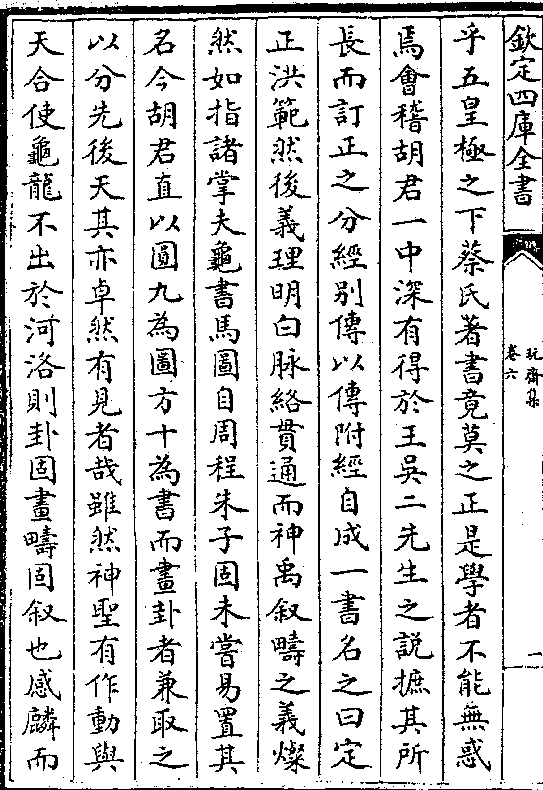 欽定四庫全書
玩齋集
卷六
一
乎五皇極之下蔡氏著書竟莫之正是學者不能無惑
焉會稽胡君一中深有得於王吳二先生之說摭其所
長而訂正之分經别傳以傳附經自成一書名之曰定
正洪範然後義理明白脉絡貫通而神禹叙疇之義燦
然如指諸掌夫龜書馬圖自周程朱子固未嘗易置其
名今胡君直以圓九為圖方十為書而畫卦者兼取之
以分先後天其亦卓然有見者哉雖然神聖有作動與
天合使龜龍不出於河洛則卦固畫疇固叙也感麟而